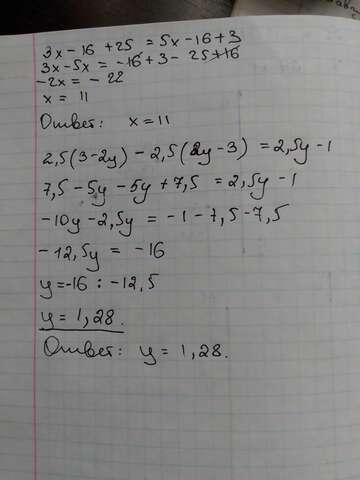 3x-16+25 = 5x-16+3
3x-5x = -16+3-25+16
-2x = -22
x = 11
Ответ: x=11
2,5(3-2y)-2,5(2y-3)=2,5y-1
7,5-5y-5y+7,5=2,5y-1
-10y-2,5y = -1-7,5-7,5
-12,5y = -16
y=-16 : -12,5
y=1,28.
Ответ: y=1,28.